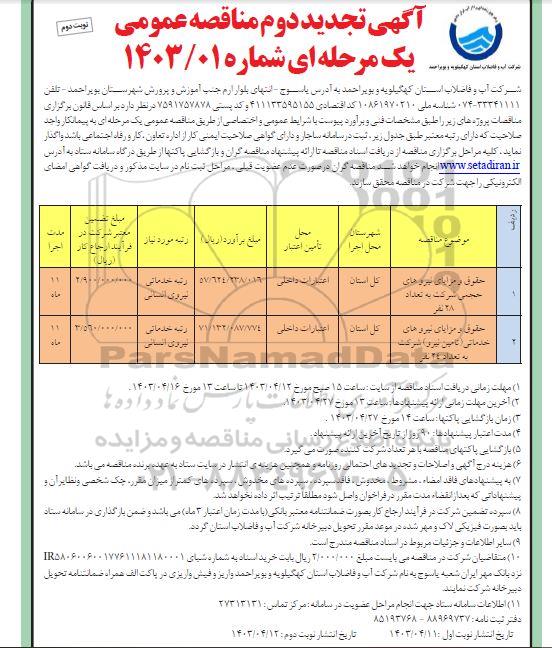 آگهی تجدید دوم مناقصه عمومی
یک مرحله ای شماره ۱۴۰۳/۰۱
نوبت دوم
شرکت آب و فاضلاب استان کهگیلویه و بویراحمد
شرکت آب و فاضلاب استان کهگیلویه و بویراحمد به آدرس یاسوج - انتهای بلوار ارم جنب آموزش و پرورش شهرستان بویراحمد - تلفن
۰۷۴-۳۳۳۴۱۱۱۱ شناسه ملی ۱۰۸۶۱۹۷۰۲۱۰ کد اقتصادی ۴۱۱۱۳۳۵۹۵۱۵۵ و کد پستی ۷۵۹۱۷۵۷۸۷۸ در نظر دارد بر اساس قانون برگزاری
مناقصات پروژه های زیر را طبق مشخصات فنی و برآورد پیوست با شرایط عمومی و اختصاصی از طریق مناقصه عمومی یک مرحله ای به پیمانکار واجد
صلاحیت که دارای رتبه معتبر طبق جدول زیر، ثبت در سامانه ساجار و دارای گواهی صلاحیت ایمنی کار از اداره تعاون، کار و رفاه اجتماعی باشد واگذار
نماید. کلیه مراحل برگزاری مناقصه از دریافت اسناد مناقصه تا ارائه پیشنهاد مناقصه گران و بازگشایی پاکتها از طریق درگاه سامانه ستاد به آدرس
www.setadiran.ir انجام خواهد شد مناقصه گران در صورت عدم عضویت قبلی، مراحل ثبت نام در سایت مذکور و دریافت گواهی امضای
الکترونیکی را جهت شرکت در مناقصه محقق سازند.
ردیف | موضوع مناقصه | شهرستان محل اجرا | محل تأمین اعتبار | مبلغ برآورد(ریال) | رتبه مورد نیاز | مبلغ تضمین معتبر شرکت در فرآیند ارجاع کار (ریال) | مدت اجرا
۱ | حقوق و مزایای نیرو های حجمی شرکت به تعداد ۲۸ نفر | کل استان | اعتبارات داخلی | ۵۷/۶۲۴/۲۳۸/۰۱۶ | رتبه خدماتی نیروی انسانی | ۲/۹۰۰/۰۰۰/۰۰۰ | ۱۱ ماه
۲ | حقوق و مزایای نیرو های خدماتی (تامین نیرو) شرکت به تعداد ۲۴ نفر | کل استان | اعتبارات داخلی | ۷۱/۱۳۲/۰۸۷/۷۷۴ | رتبه خدماتی نیروی انسانی | ۳/۵۶۰/۰۰۰/۰۰۰ | ۱۱ ماه
۱) مهلت زمانی دریافت اسناد مناقصه از سایت: ساعت ۱۵ صبح مورخ ۱۴۰۳/۰۴/۱۲ تا ساعت ۱۳ مورخ ۱۴۰۳/۰۴/۱۶.
۲) آخرین مهلت زمانی ارائه پیشنهادها: ساعت ۱۳ مورخ ۱۴۰۳/۰۴/۲۷.
۳) زمان بازگشایی پاکتها: ساعت ۱۴ مورخ ۱۴۰۳/۰۴/۲۷.
۴) مدت اعتبار پیشنهادها: ۹۰ روز از تاریخ آخرین ارائه پیشنهاد.
۵) بازگشایی پاکتهای مناقصه با هر تعداد شرکت کننده صورت می گیرد.
۶) هزینه درج آگهی و اصلاحات و تجدید های احتمالی روزنامه و همچنین هزینه ی انتشار در سایت ستاد به عهده برنده مناقصه می باشد.
۷) به پیشنهادهای فاقد امضاء، مشروط مخدوش، فاقد سپرده، سپرده های مخدوش، سپرده های کمتر از میزان مقرر، چک شخصی ونظایر آن و
پیشنهاداتی که بعد از انقضاء مدت مقرر در فراخوان واصل شود مطلقاً ترتیب اثر داده نخواهد شد.
۸) سپرده تضمین شرکت در فرآیند ارجاع کار بصورت ضمانتنامه معتبر بانکی (با مدت زمان اعتبار ۳ ماه) می باشد و ضمن بارگذاری در سامانه ستاد
باید بصورت فیزیکی لاک و مهر شده در موعد مقرر تحویل دبیرخانه شرکت آب و فاضلاب استان گردد.
۹) سایر اطلاعات و جزئیات مربوط در اسناد مناقصه مندرج است.
۱۰) متقاضیان شرکت در مناقصه می بایست مبلغ ۲/۰۰۰/۰۰۰ ریال بابت خرید اسناد به شماره شبای IR۵۸۰۶۰۰۶۰۰۱۷۷۶۱۱۱۸۱۱۸۰۰۰۱
نزد بانک مهر ایران شعبه یاسوج به نام شرکت آب و فاضلاب استان کهگیلویه و بویراحمد واریز و فیش واریزی در پاکت الف همراه ضمانتنامه تحویل
دبیرخانه شرکت نمایند.
۱۱) اطلاعات سامانه ستاد جهت انجام مراحل عضویت در سامانه: مرکز تماس: ۲۷۳۱۳۱۳۱
دفتر ثبت نامه: ۸۸۹۶۹۷۳۷ - ۸۵۱۹۳۷۶۸
تاریخ انتشار نوبت اول: ۱۴۰۳/۰۴/۱۱ تاریخ انتشار نوبت دوم: ۱۴۰۳/۰۴/۱۲
ParsNamadData